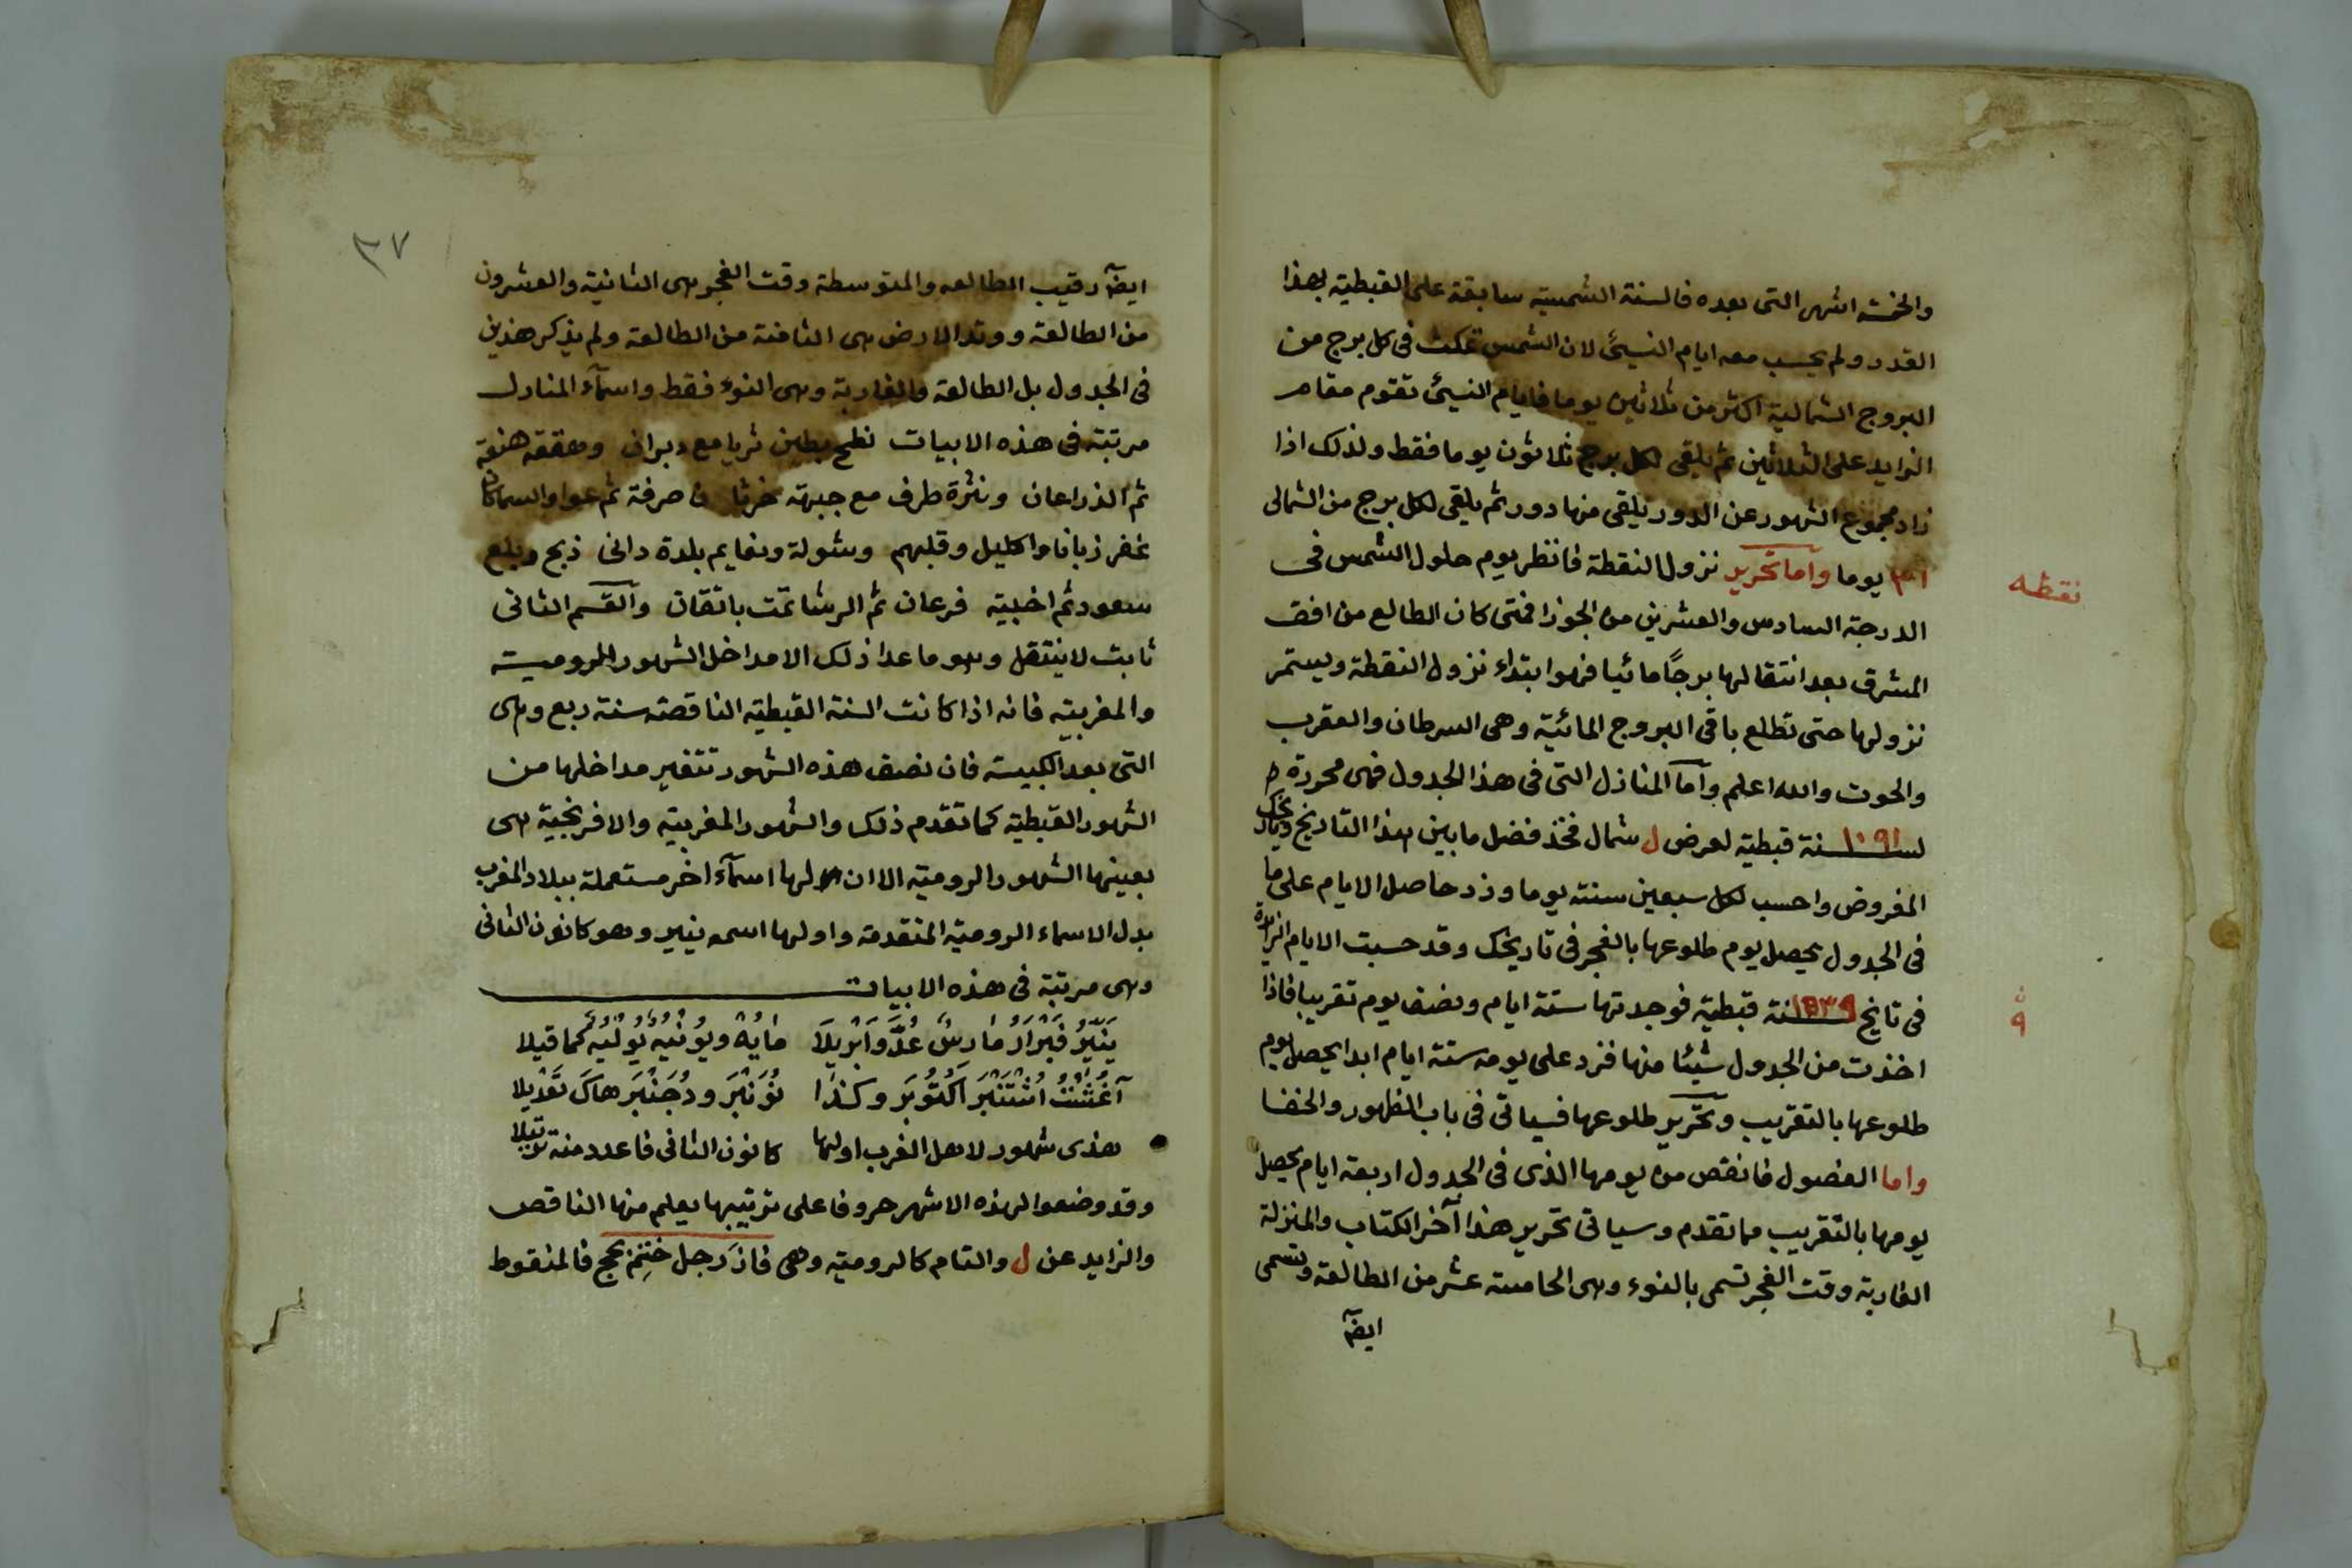 والخمسة اشهر التى بعده فالسنة الشمسية سابقة على القبطية بهذا
القدر ولم يحسب معه ايام النسيئ لان الشمس تمكث فى كل برج من
البروج الشمالية اكثر من ثلاثين يوما فايام النسيئ تقوم مقام
الزايد على الثلاثين ثم يلقى لكل برج ثلاثون يوما فقط ولذلك اذا
زاد مجموع الشهور عن الدور يلقى منها دور ثم يلقى لكل برج من الشمالى
٣١ يوما واما تحرير نزول النقطة فانظر يوم حلول الشمس فى
نقطه
الدرجة السادس والعشرين من الجوزا فمتى كان الطالع من افق
المشرق بعد انتقالها برجًا مائيا فهو ابتداء نزول النقطة ويستمر
نزولها حتى تطلع باقى البروج المائية وهى السرطان والعقرب
والحوت والله اعلم واما المنازل التى فى هذا الجدول فهى محررة
لسنة ١٠٩١ قبطية لعرض ل شمال فخذ فضل ما بين هذا التاريخ وتاريخك
المفروض واحسب لكل سبعين سنة يوما وزد حاصل الايام على ما
فى الجدول يحصل يوم طلوعها بالفجر فى تاريخك وقد حسبت الايام الزايدة
فى تايخ سنة ١٥٣٩ قبطية فوجدتها ستة ايام ونصف يوم تقريبا فاذا
اخذت من الجدول شيئا منها فزد على يومه ستة ايام ابدا يحصل يوم
طلوعها بالتقريب وتحرير طلوعها فسياتى فى باب الظهور والخفا
واما الفصول فانقص من يومها الذى فى الجدول اربعة ايام يحصل
يومها بالتقريب مما تقدم وسياتى تحرير هذا آخر الكتاب والمنزلة
الغاربة وقت الفجر تسمى بالنوء وهى الخامسة عشر من الطالعة وتسمى
ايضآ
٣٧
ايضآ رقيب الطالعه والمتوسطة وقت الفجر هى الثانية والعشرون
من الطالعة ووتد الارض هى الثامنة من الطالعة ولم يذكر هذين
فى الجدول بل الطالعة والغاربة وهى النوء فقط واسمآء المنازل
مرتبة فى هذه الابيات نطح بطين ثريا مع دبران وهقعة هنعة
ثم الذراعان ونثرة طرف مع جبهة خرثان صرفة ثم عوا والسماكان
غفر زبانا واكليل وقلبهم وشولة ونعايم بلدة دانى ذبح وبلع
سعود ثم اخبية فرعان ثم الرشا تمت باتقان والقسم الثانى
ثابت لا ينتقل وهو ما عدا ذلك الا مداخل الشهور الرومية
والمغربيه فانه اذا كانت السنة القبطية الناقصة سنة ربع وهى
التى بعد الكبيسة فان نصف هذه الشهور تتغير مداخلها من
الشهور القبطية كما تقدم ذلك والشهور المغربية والافرنجية هى
بعينها الشهور الرومية الا ان لها اسمآء اخر مستعملة ببلاد المغرب
بدل الاسماء الرومية المتقدمة واولها اسمه ينير وهو كانون الثانى
وهى مرتبة فى هذه الابيات
يَنَّيْرُ فَبْرَارُ مَارِسٌ عُدَّ وَابْرِيلَا مَايُهْ ويُوْنْيُه يُوْلْيُه كما قيلا
آغُشْتُ اشْتَنْبَرَ اكْتُوْبَر وكذا نُوَنْبَرَ ودُجَنْبَرَ هاكَ تَعْدِيلا
هذى شهور لاهل الغرب اولها كانون الثانى فاعدد منه ترتيلا
وقد وضعوا لهذه الاشهر حروفا على ترتيبها يعلم منها الناقص
والزايد عن ل والتام كالرومية وهى فاذَ رجل ختم بحج فالمنقوط